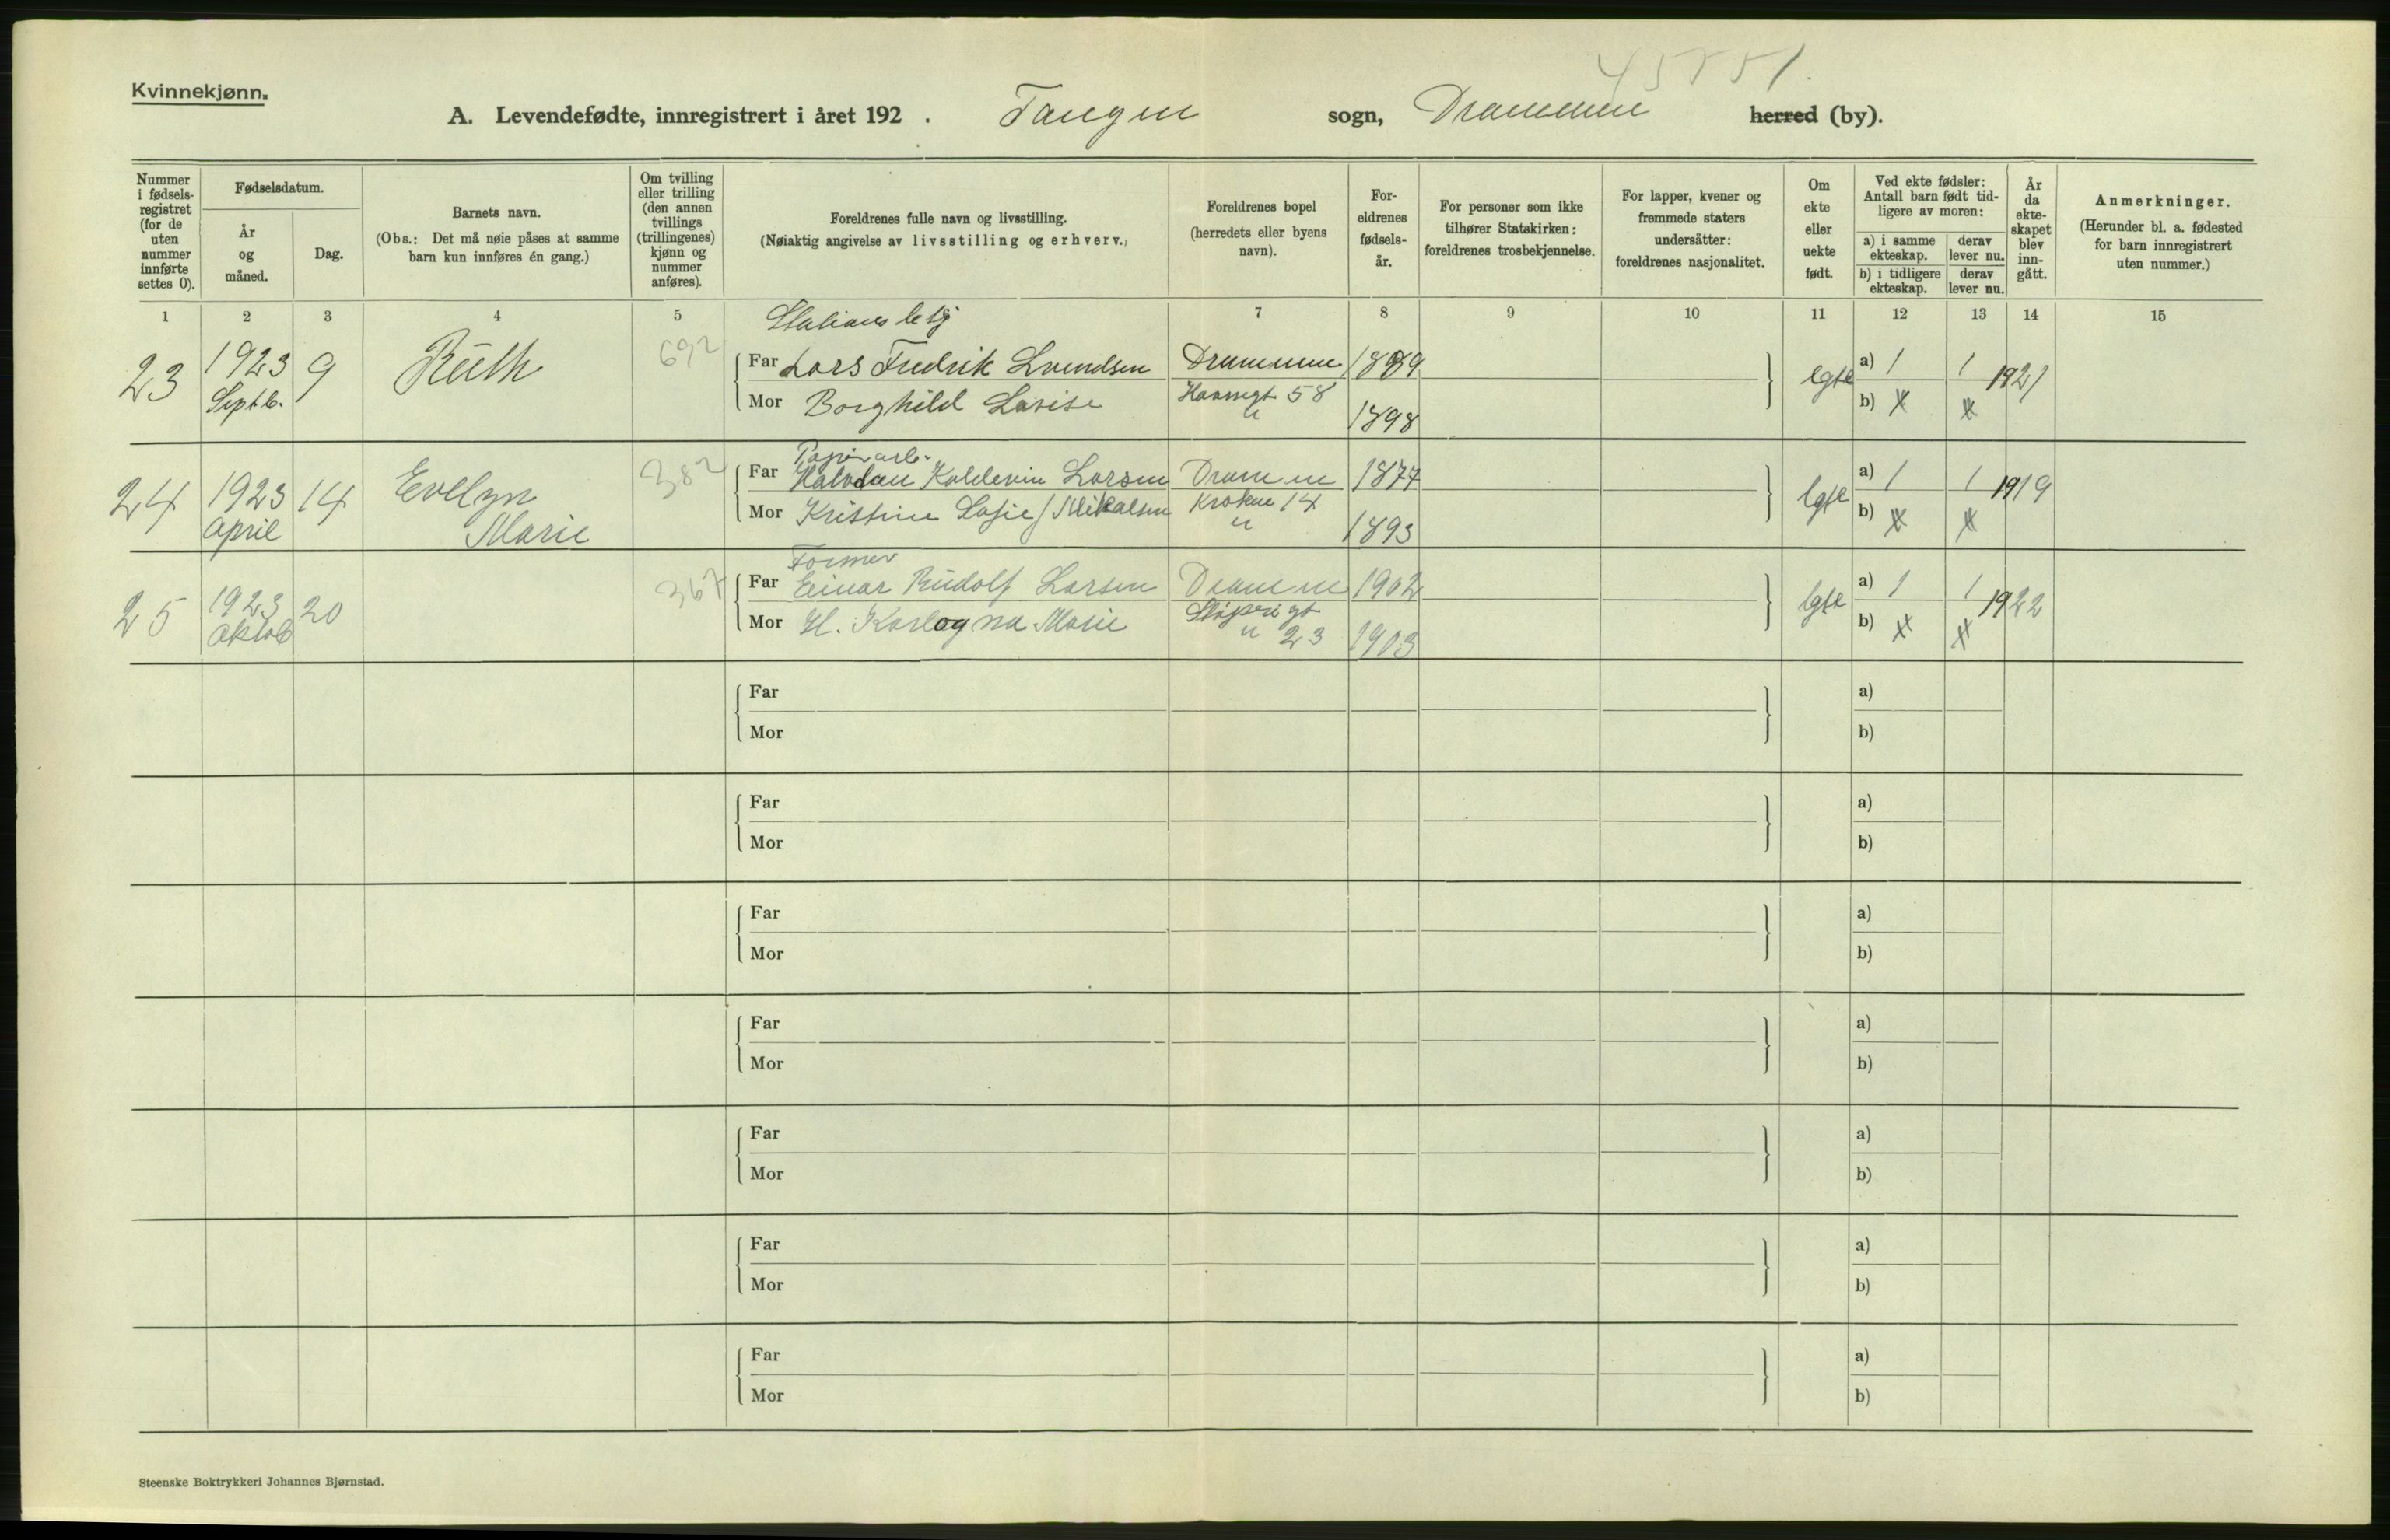 45551.
Kvinnekjønn.
A. Levendefødte, innregistrert i året 192 . Tangen sogn, Drammen herred (by).
Nummer i fødsels-registret (for de uten nummer innførte settes 0).
Fødselsdatum.
År og måned.
Dag.
Barnets navn.
(Obs.: Det må nøie påses at samme barn kun innføres én gang.)
Om tvilling eller trilling (den annen tvillings (trillingenes) kjønn og nummer anføres).
Foreldrenes fulle navn og livsstilling.
(Nøiaktig angivelse av livsstilling og erhverv.)
Foreldrenes bopel (herredets eller byens navn).
For-eldrenes fødsels-år.
For personer som ikke tilhører Statskirken: foreldrenes trosbekjennelse.
For lapper, kvener og fremmede staters undersåtter: foreldrenes nasjonalitet.
Om ekte eller uekte født.
Ved ekte fødsler: Antall barn født tid-ligere av moren:
a) i samme ekteskap.
derav lever nu.
b) i tidligere ekteskap.
derav lever nu.
År da ekte-skapet blev inn-gått.
Anmerkninger.
(Herunder bl. a. fødested for barn innregistrert uten nummer.)
1 2 3 4 5 7 8 9 10 11 12 13 14 15
Stasions betj
23 1923 Septb. 9 Ruth 692
Far Lars Fredrik Svendsen Drammen 1899
Mor Borghild Lovise Havnegt 58 " 1898
egte a) 1 1 1921
b) x x
Papirarb.
24 1923 April 14 Evelyn Marie 382
Far Halvdan Koldevin Larsen Drammen 1877
Mor Kristine Sofie / Mikalsen Kroken 14 " 1893
egte a) 1 1 1919
b) x x
Former
25 1923 Oktob 20 367
Far Einar Rudolf Larsen Drammen 1902
Mor H. Karlagna Marie Støperigt " 23 1903
egte a) 1 1 1922
b) x x
Far a)
Mor b)
Far a)
Mor b)
Far a)
Mor b)
Far a)
Mor b)
Far a)
Mor b)
Far a)
Mor b)
Far a)
Mor b)
Steenske Boktrykkeri Johannes Bjørnstad.